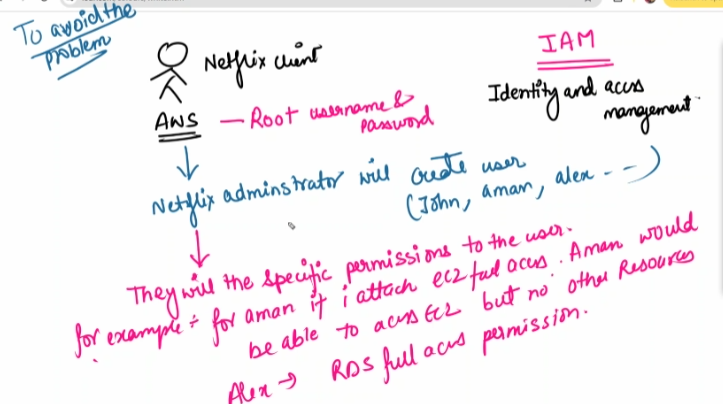 To avoid the
problem
Netflix client
IAM
Identity and access
management
AWS — Root username &
password
Netflix adminstrator will create user
(John, aman, alex - - )
They will the specific permissions to the user.
for example ÷ for aman if i attach EC2 full access. Aman would
be able to access EC2 but no other Resources
Alex → RDS full access permission.